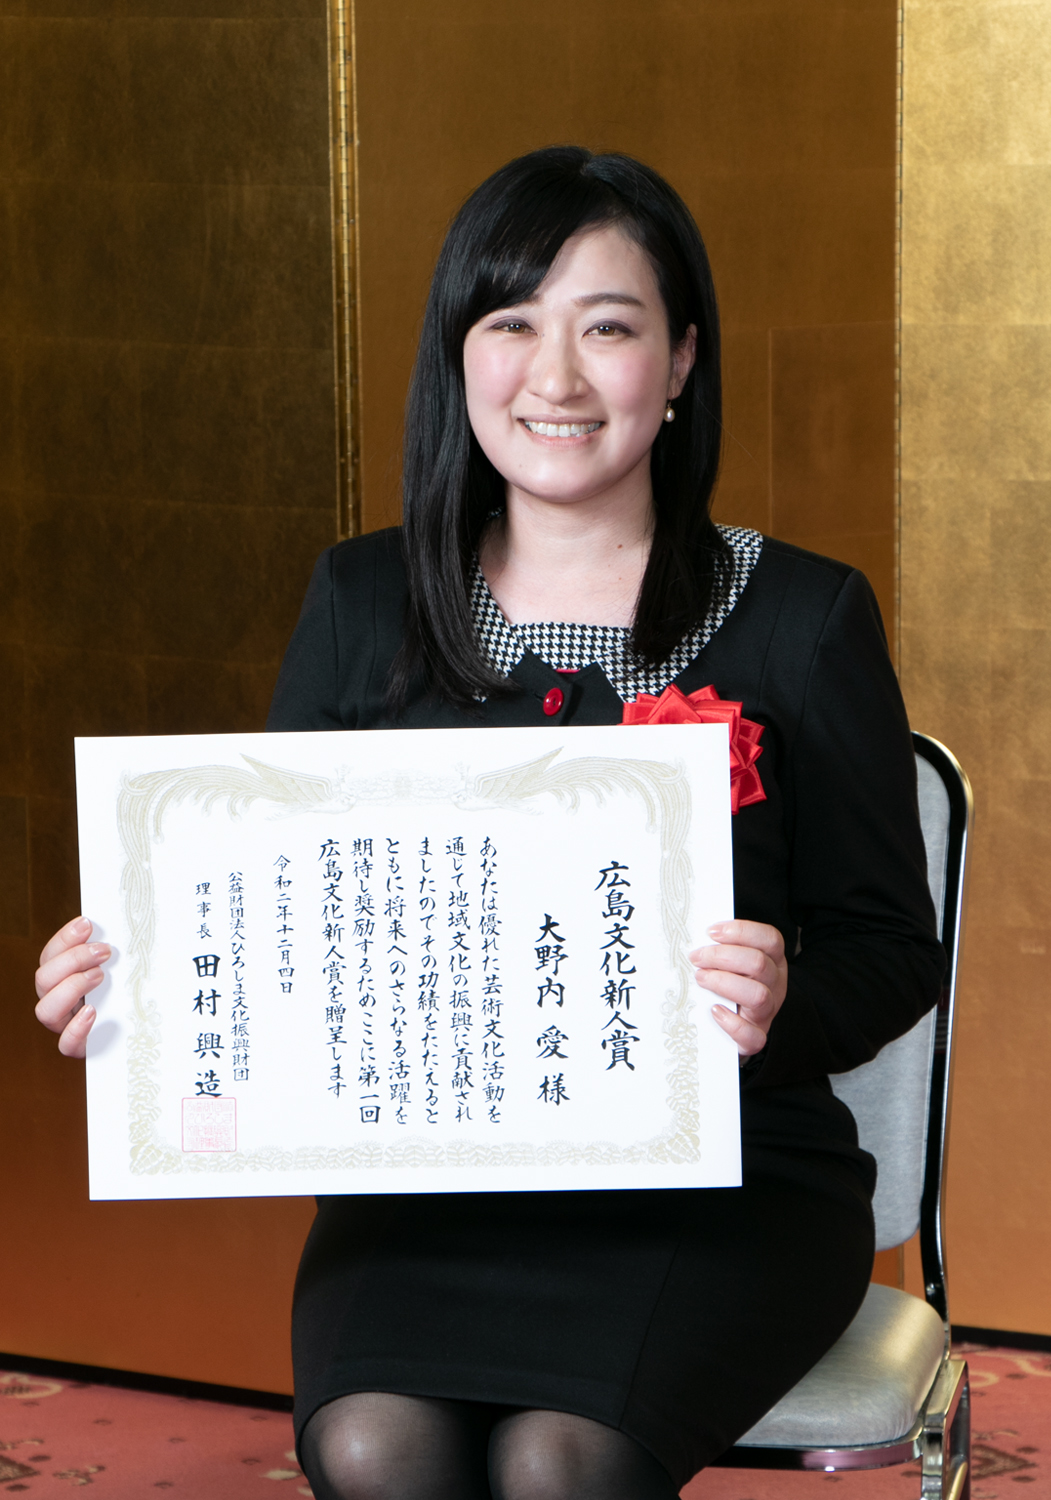 広島文化新人賞
大野内 愛 様
あなたは優れた芸術文化活動を
通じて地域文化の振興に貢献され
ましたのでその功績をたたえると
ともに将来へのさらなる活躍を
期待し奨励するためここに第一回
広島文化新人賞を贈呈します
令和二年十二月四日
公益財団法人ひろしま文化振興財団
理事長 田村興造